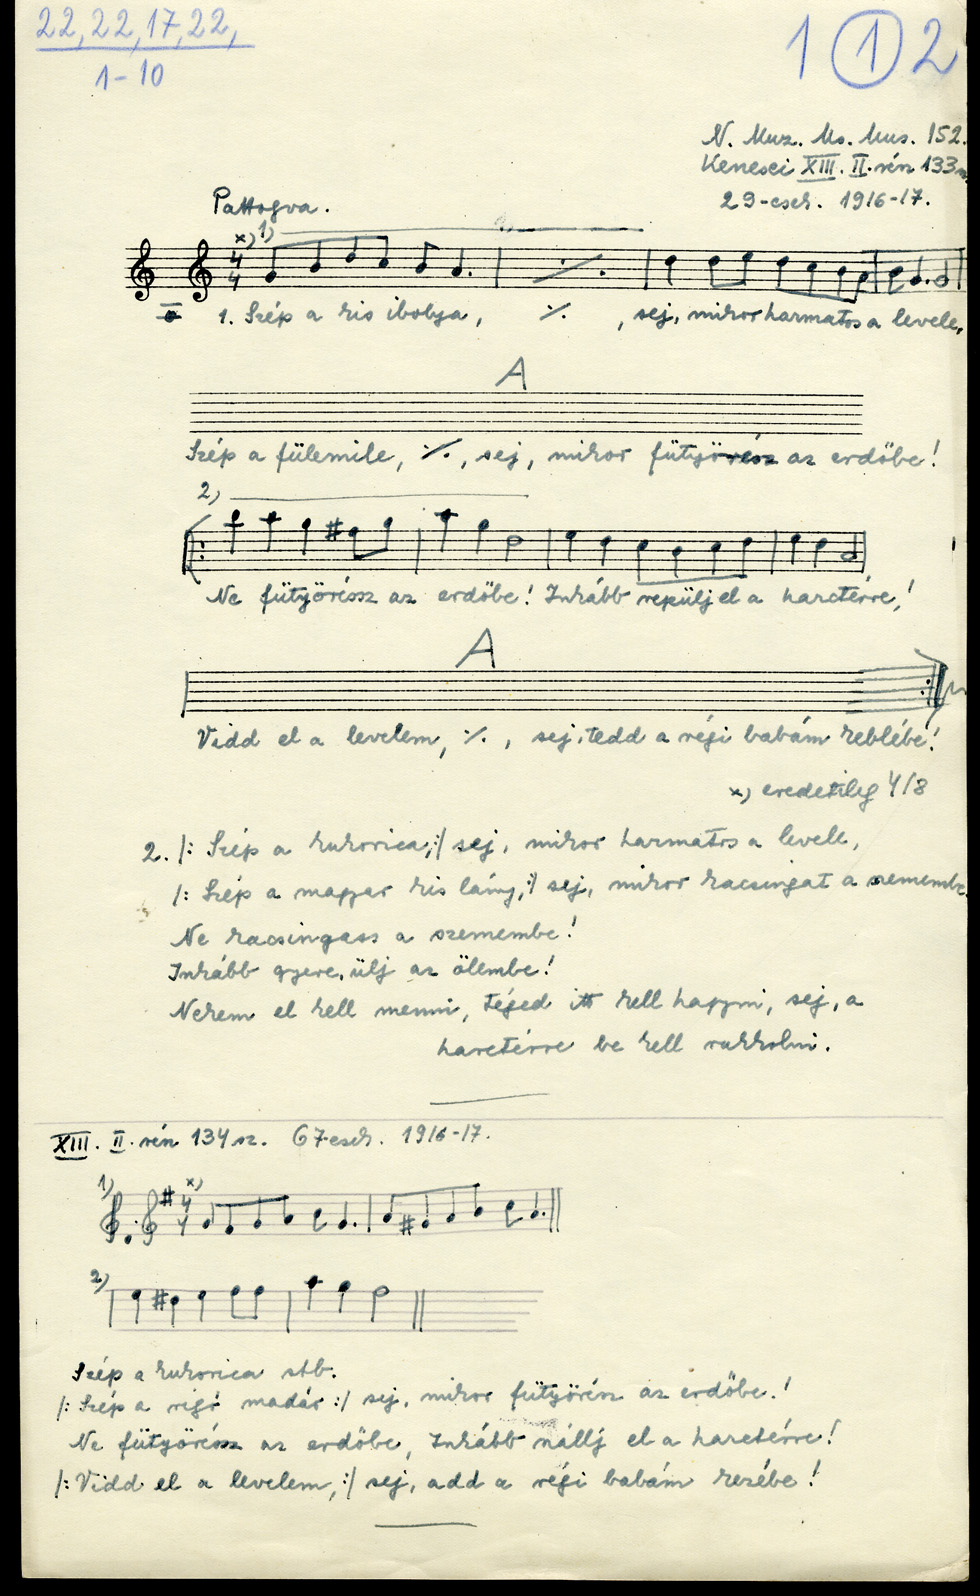 22, 22, 17, 22,
1-10
1 1 2
N. Muz. Ms. Mus. 152.
Kenesei XIII. II. rész 133 sz.
29-esek. 1916-17.
Pattogva.
x) 1)
4/4
1. Szép a kis ibolya, ·/. , sej, mikor harmatos a levele,
A
Szép a fülemile, ·/. , sej, mikor fütyörész az erdőbe!
2)
Ne fütyöréssz az erdőbe! Inkább repülj el a harctérre,!
A
Vidd el a levelem, ·/. , sej, tedd a régi babám keblébe!
x) eredetileg 4/8
2. /: Szép a kukorica, :/ sej, mikor harmatos a levele,
/: Szép a magyar kis lány, :/ sej, mikor kacsingat a szemembe.
Ne kacsingass a szemembe!
Inkább gyere, ülj az ölembe!
Nekem el kell menni, téged itt kell hagyni, sej, a
harctérre be kell rukkolni.
XIII. II. rész 134 sz. 67-esek. 1916-17.
1) x)
4/4
2)
Szép a kukorica stb.
/: Szép a rigó madár :/ sej, mikor fütyörész az erdőbe.!
Ne fütyöréssz az erdőbe, Inkább szállj el a harctérre!
/: Vidd el a levelem, :/ sej, add a régi babám kezébe!